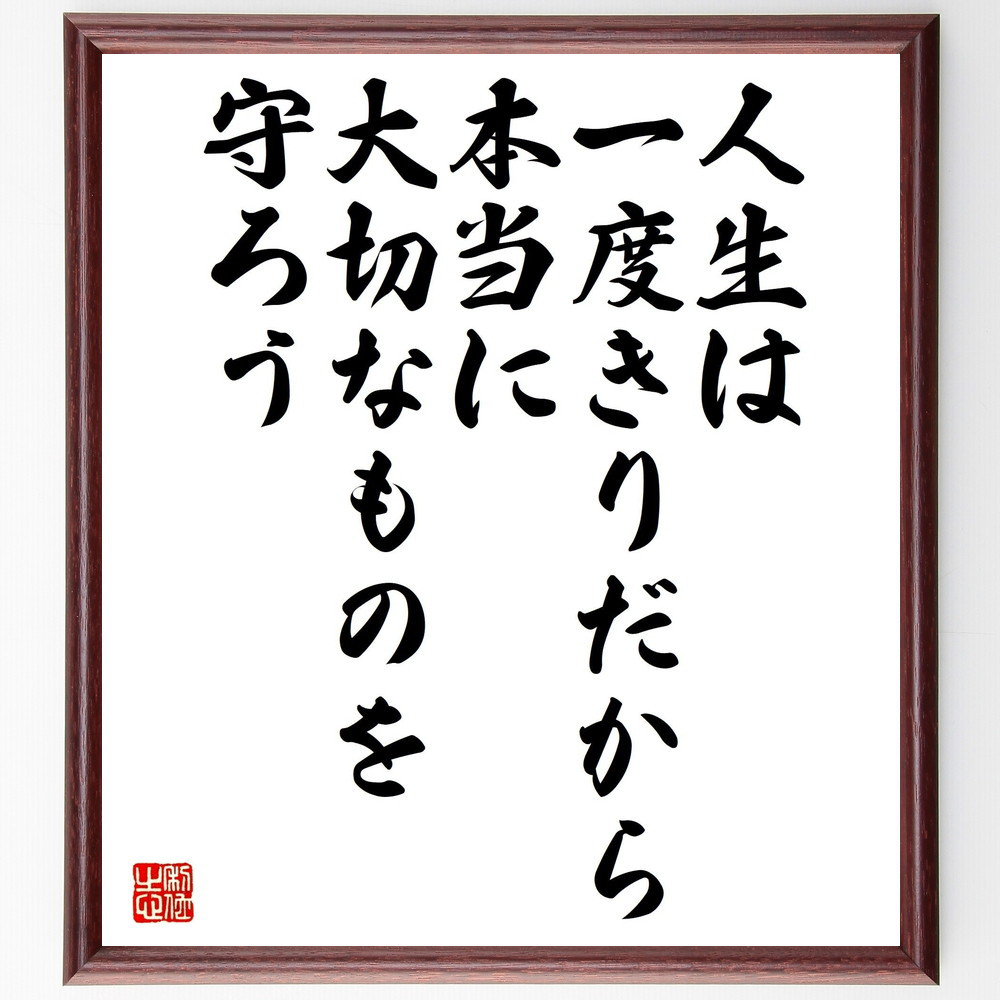 人生は
一度きりだから
本当に
大切なものを
守ろう